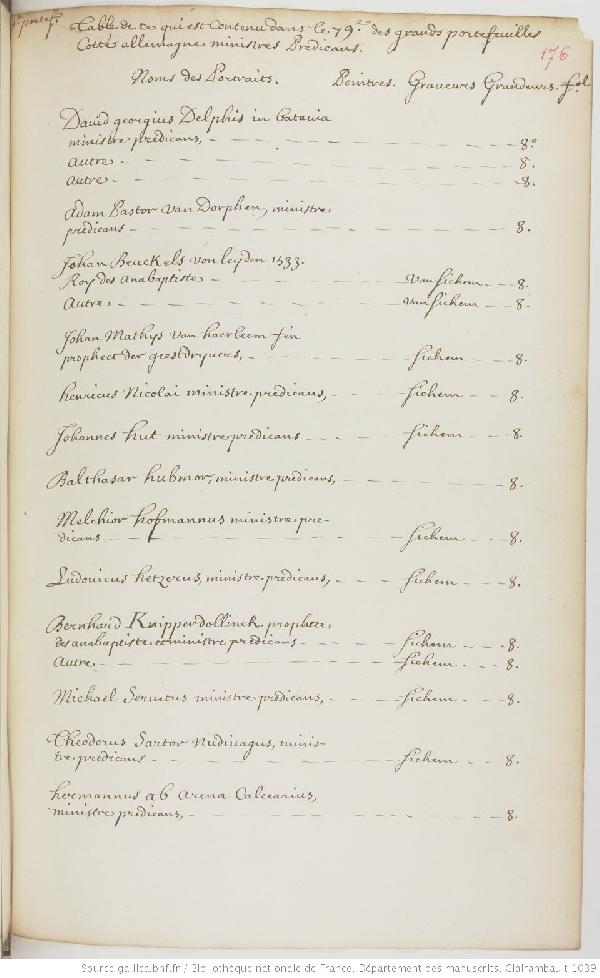 Table de ce qui est contenu dans le 79.e des grands portefeuilles
Cotté allemagne ministres Prédicans.
176
Noms des Portraits. Peintres. Graveurs Grandeurs. fol
David georgius Delphis in batavia
ministre prédicans, 8.o
autre 8.
autre 8.
Adam Pastor van Dorphen, ministre
prédicans 8.
Johan Beuckels von leyden 1533.
Roy des anabaptiste Van sichem 8.
Autre, van sichem 8.
Johan Mathys van haerleem
prophect der geestdryvers, sichem 8.
henricus Nicolai ministre prédicans, sichem 8.
Johannes hut ministre prédicans sichem 8.
Balthasar hubmor, ministre prédicans, 8.
Melchior hofmannus ministre pre-
dicans sichem 8.
Ludovicus hetzerus, ministre prédicans, sichem 8.
Bernhard Knipperdollinck prophete
des anabaptiste et ministre prédicans sichem 8.
Autre. sichem 8.
Michael Servetus ministre prédicans, sichem 8.
Theodorus Sartor Nudivagus, minis-
tre prédicans sichem 8.
hermannus ab arena Calcearius,
ministre prédicans, 8.
Source gallica.bnf.fr / Bibliothèque nationale de France. Département des manuscrits. Clairambault 1039